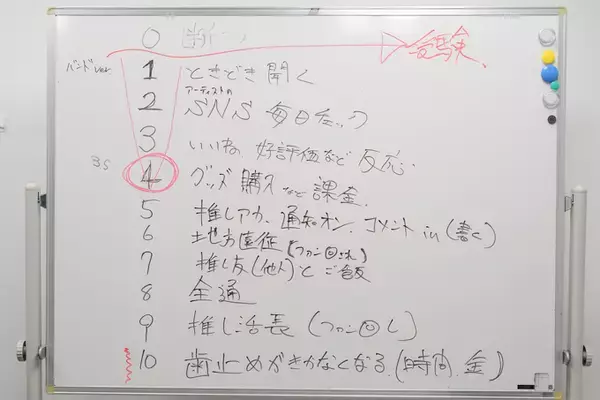 0
バンドver 1 ときどき聞く
アーティストの
2 SNS 毎日チェック
3 いいね、好評価など反応
4 グッズ購入など課金
5 推しアカ、通知オン、コメント in (書く)
6 地方遠征
7 推し友(他人)とご飯
8 全通
9 推し活長
10 歯止めがきかなくなる。(時間、金)